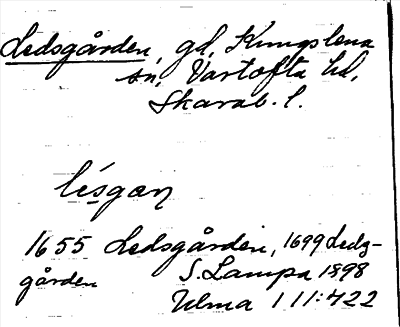 Ledsgården, gd, Kungslena
sn, Vartofta hd,
Skarab. l.
lésgaɳ
1655 Ledsgården, 1699 Ledz-
gården S. Lampa 1898
Ulma 111:422